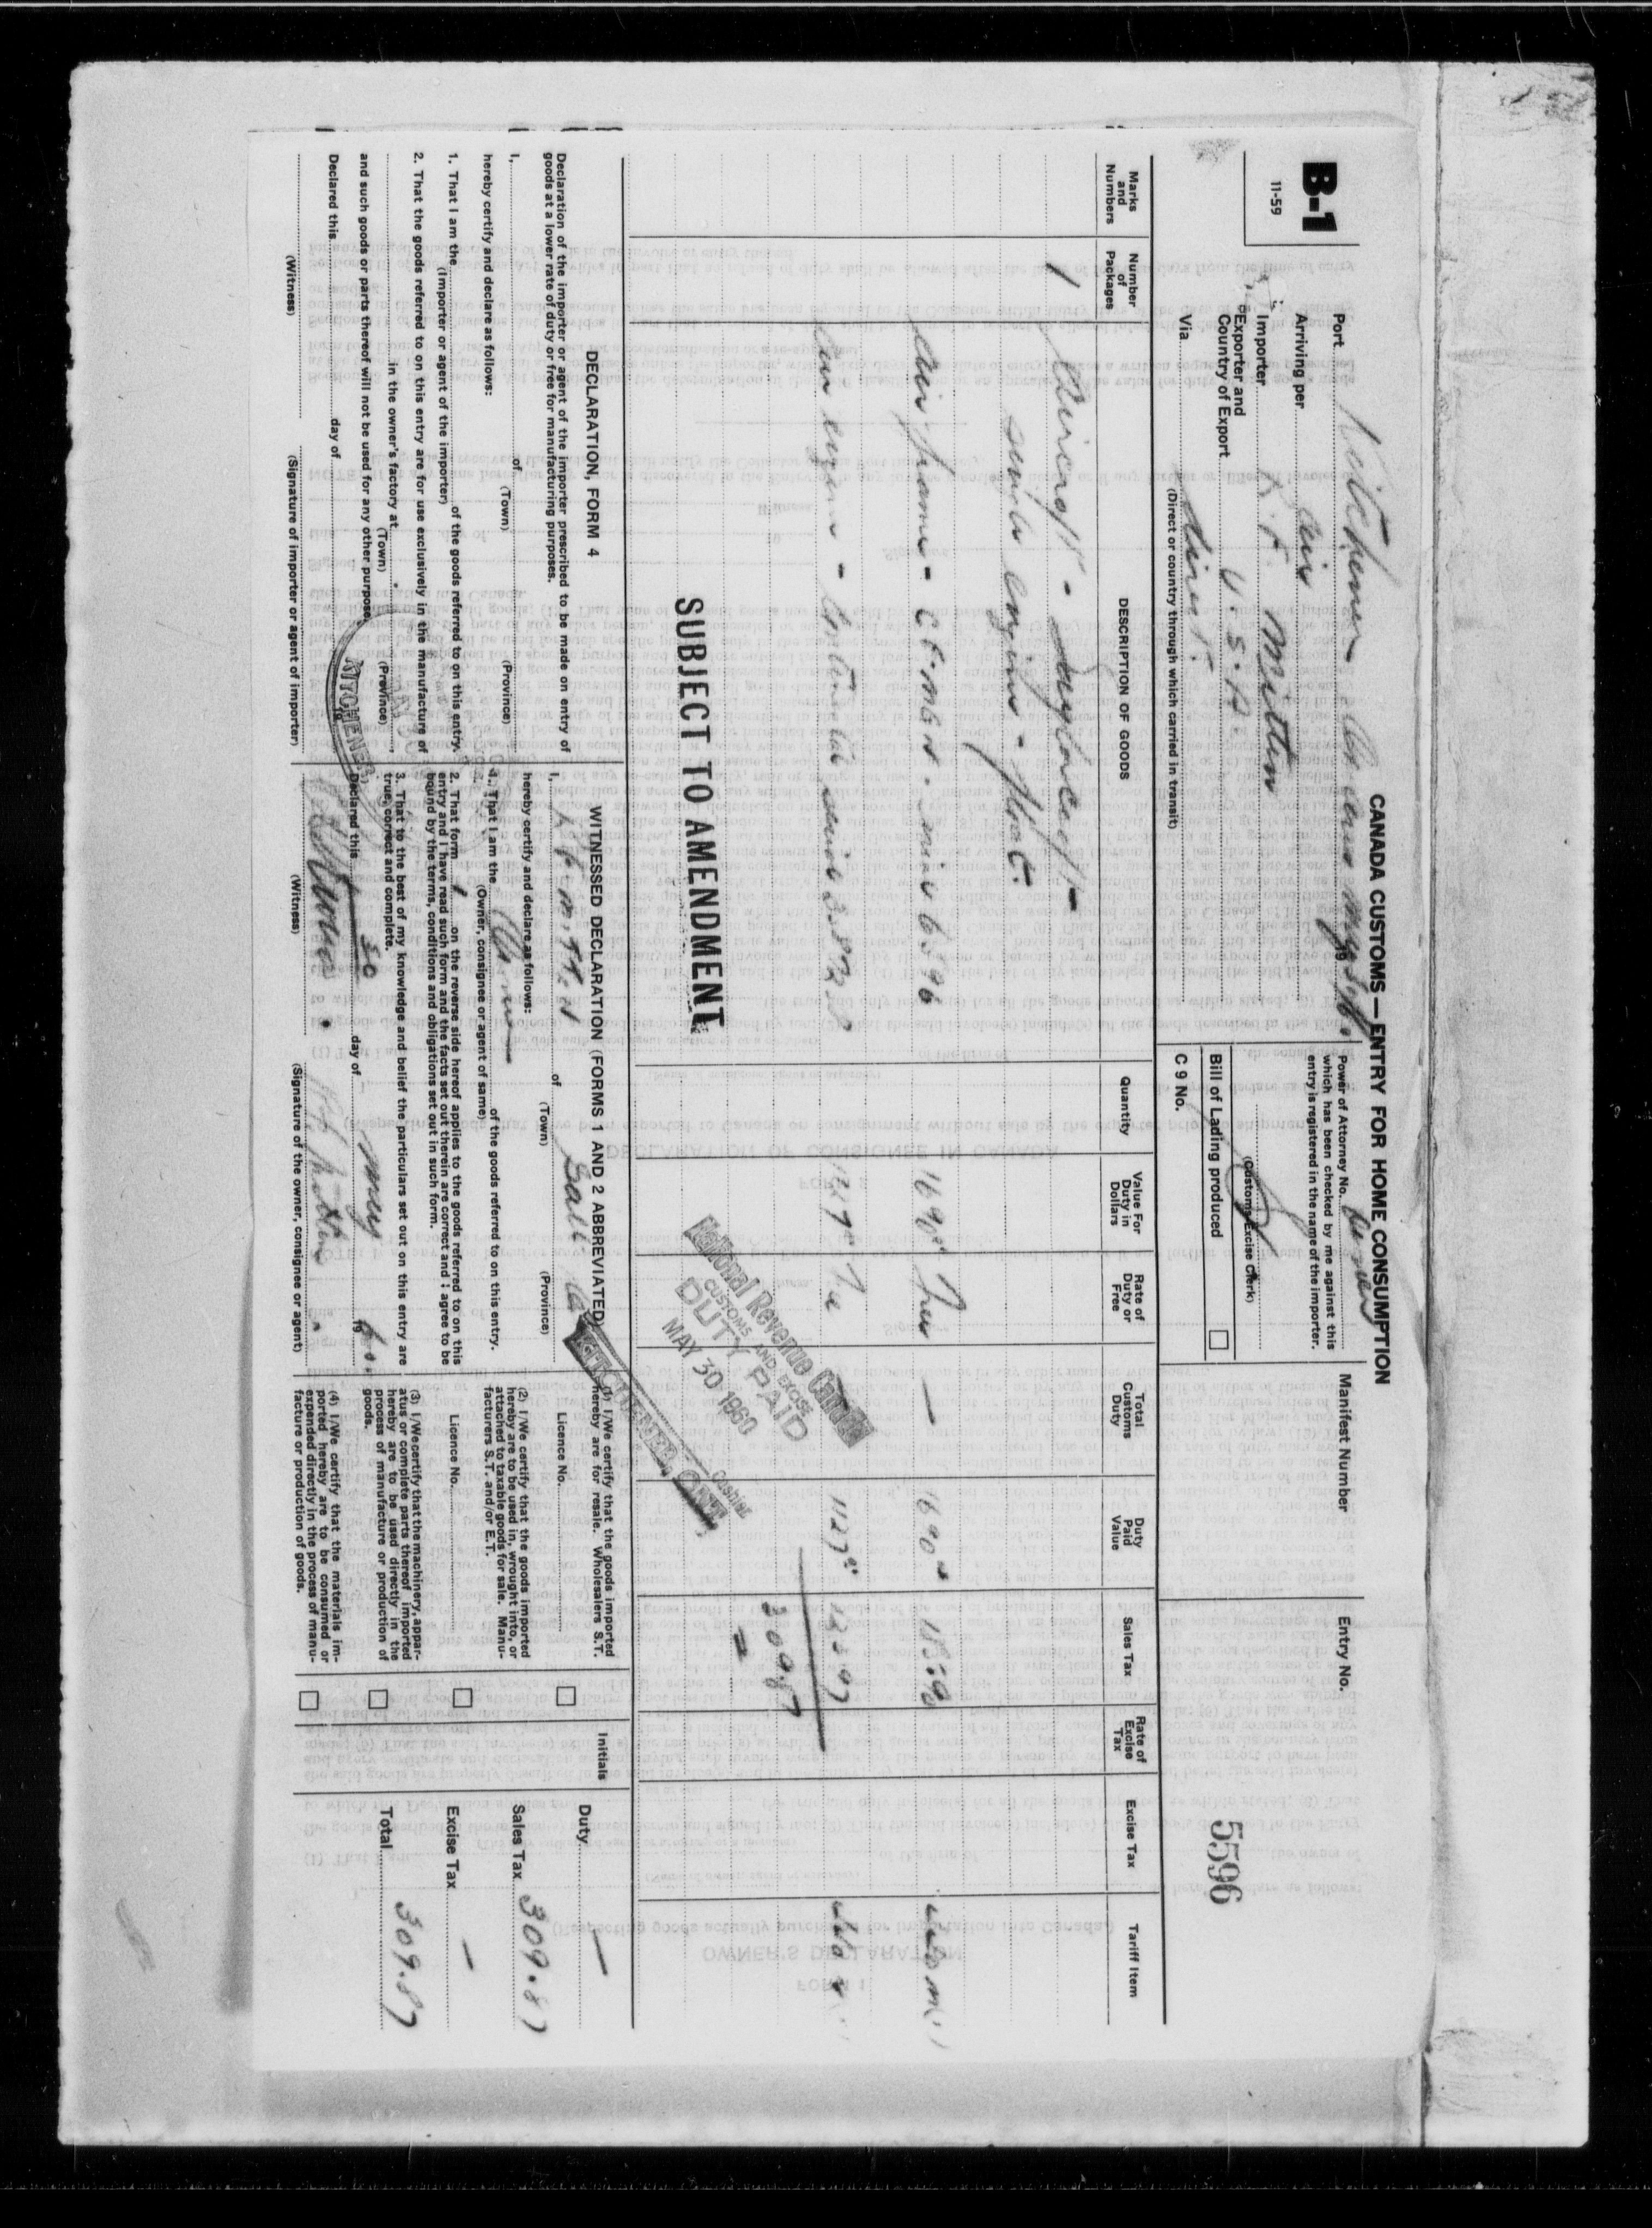 B-1
11-59
CANADA CUSTOMS — ENTRY FOR HOME CONSUMPTION
Port Kitchener
19
Arriving per air
Importer K. F. Mitten
Exporter and
Country of Export U.S.A.
Via direct
(Direct or country through which carried in transit)
Power of Attorney No. Owner
which has been checked by me against this
entry is registered in the name of the importer.
(Customs-Excise Clerk)
Bill of Lading produced
C 9 No.
Manifest Number
Entry No.
5596
Marks and Numbers
Number of Packages
DESCRIPTION OF GOODS
Quantity
Value For Duty in Dollars
Rate of Duty or Free
Total Customs Duty
Duty Paid Value
Sales Tax
Rate of Excise Tax
Excise Tax
Tariff Item
1 Aircraft -
single engine -
Air frame - CF-MGN -
1690 Free — 1690 185.90
Air engine - Continental
1127 123.97
309.87
SUBJECT TO AMENDMENT
National Revenue Canada
CUSTOMS AND EXCISE
DUTY PAID
MAY 30 1960
Cashier
KITCHENER, ONT.
DECLARATION, FORM 4
Declaration of the importer or agent of the importer prescribed to be made on entry of
goods at a lower rate of duty or free for manufacturing purposes.
I, of
(Town) (Province)
hereby certify and declare as follows:
1. That I am the of the goods referred to on this entry.
(Importer or agent of the importer)
2. That the goods referred to on this entry are for use exclusively in the manufacture of
in the owner's factory at
(Town) (Province)
and such goods or parts thereof will not be used for any other purpose.
Declared this day of 19
(Witness) (Signature of importer or agent of importer)
KITCHENER
WITNESSED DECLARATION (FORMS 1 AND 2 ABBREVIATED)
I, K. F. Mitten of Galt
(Town) (Province)
hereby certify and declare as follows:
1. That I am the Owner of the goods referred to on this entry.
(Owner, consignee or agent of same)
2. That form 1 on the reverse side hereof applies to the goods referred to on this
entry and I have read such form and the facts set out therein are correct and I agree to be
bound by the terms, conditions and obligations set out in such form.
3. That to the best of my knowledge and belief the particulars set out on this entry are
true, correct and complete.
Declared this 30 day of May 1960
(Witness) (Signature of the owner, consignee or agent)
(1) I/We certify that the goods imported
hereby are for resale. Wholesalers S.T.
Licence No.
(2) I/We certify that the goods imported
hereby are to be used in, wrought into, or
attached to taxable goods for sale. Manu-
facturers S.T. and/or E.T.
Licence No.
(3) I/We certify that the machinery, appar-
atus or complete parts thereof imported
hereby are to be used directly in the
process of manufacture or production of
goods.
(4) I/We certify that the materials im-
ported hereby are to be consumed or
expended directly in the process of manu-
facture or production of goods.
Initials
Duty —
Sales Tax 309.87
Excise Tax —
Total 309.87